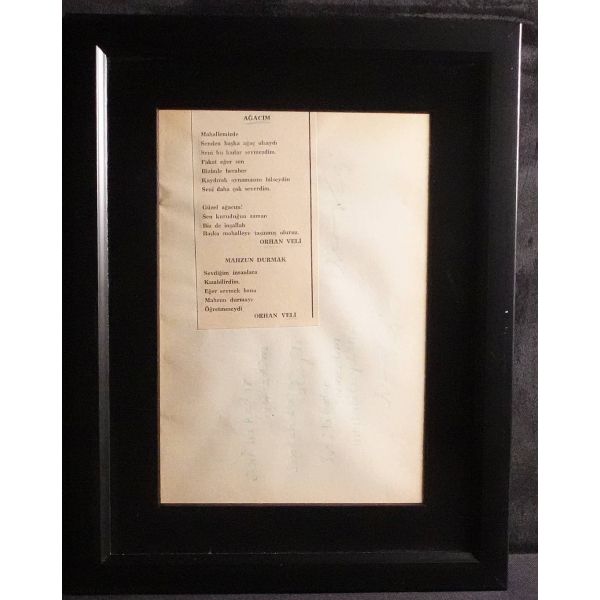 AĞACIM
Mahallemizde
Senden başka ağaç olsaydı
Seni bu kadar sevmezdim.
Fakat eğer sen
Bizimle beraber
Kaydırak oynamasını bilseydin
Seni daha çok severdim.
Güzel ağacım!
Sen kuruduğun zaman
Biz de inşallah
Başka mahalleye taşınmış oluruz.
ORHAN VELİ
MAHZUN DURMAK
Sevdiğim insanlara
Kızabilirdim,
Eğer sevmek bana
Mahzun durmayı
Öğretmeseydi
ORHAN VELİ